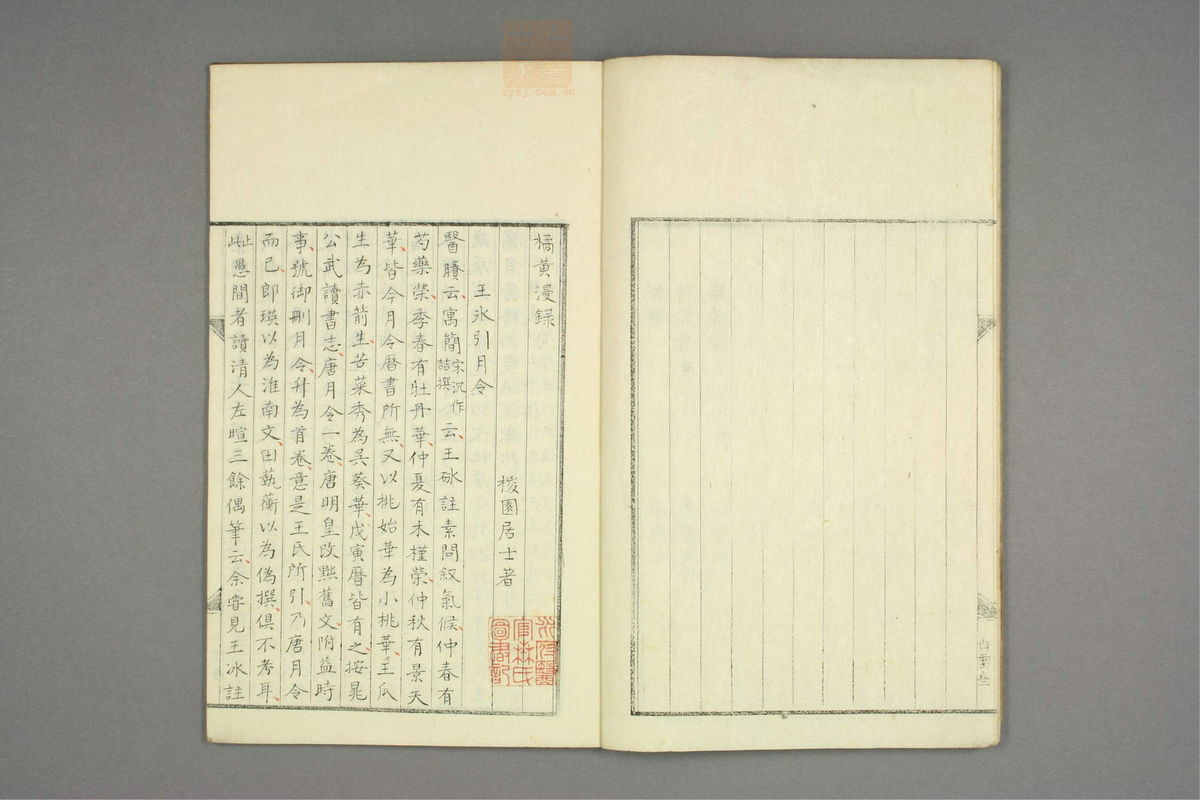 橘黃漫録
桵園居士著
王氷引月令
醫賸云寓簡宋沉作喆撰云王砅註素問叙氣候仲春有
芍藥榮季春有牡丹華仲夏有木槿榮仲秋有景天
華皆今月令曆書所無又以桃始華為小桃華王瓜
生為赤箭生苦菜秀為呉葵華戊寅曆皆有之按晁
公武讀書志唐月令一卷唐明皇改黙舊文附益時
事號御刪月令升為首卷意是王氏所引乃唐月令
而已郎瑛以為淮南文田藝蘅以為偽撰俱不考耳
止此愚間者讀清人左暄三餘偶筆云余嘗見王冰註
zysj.com.cn